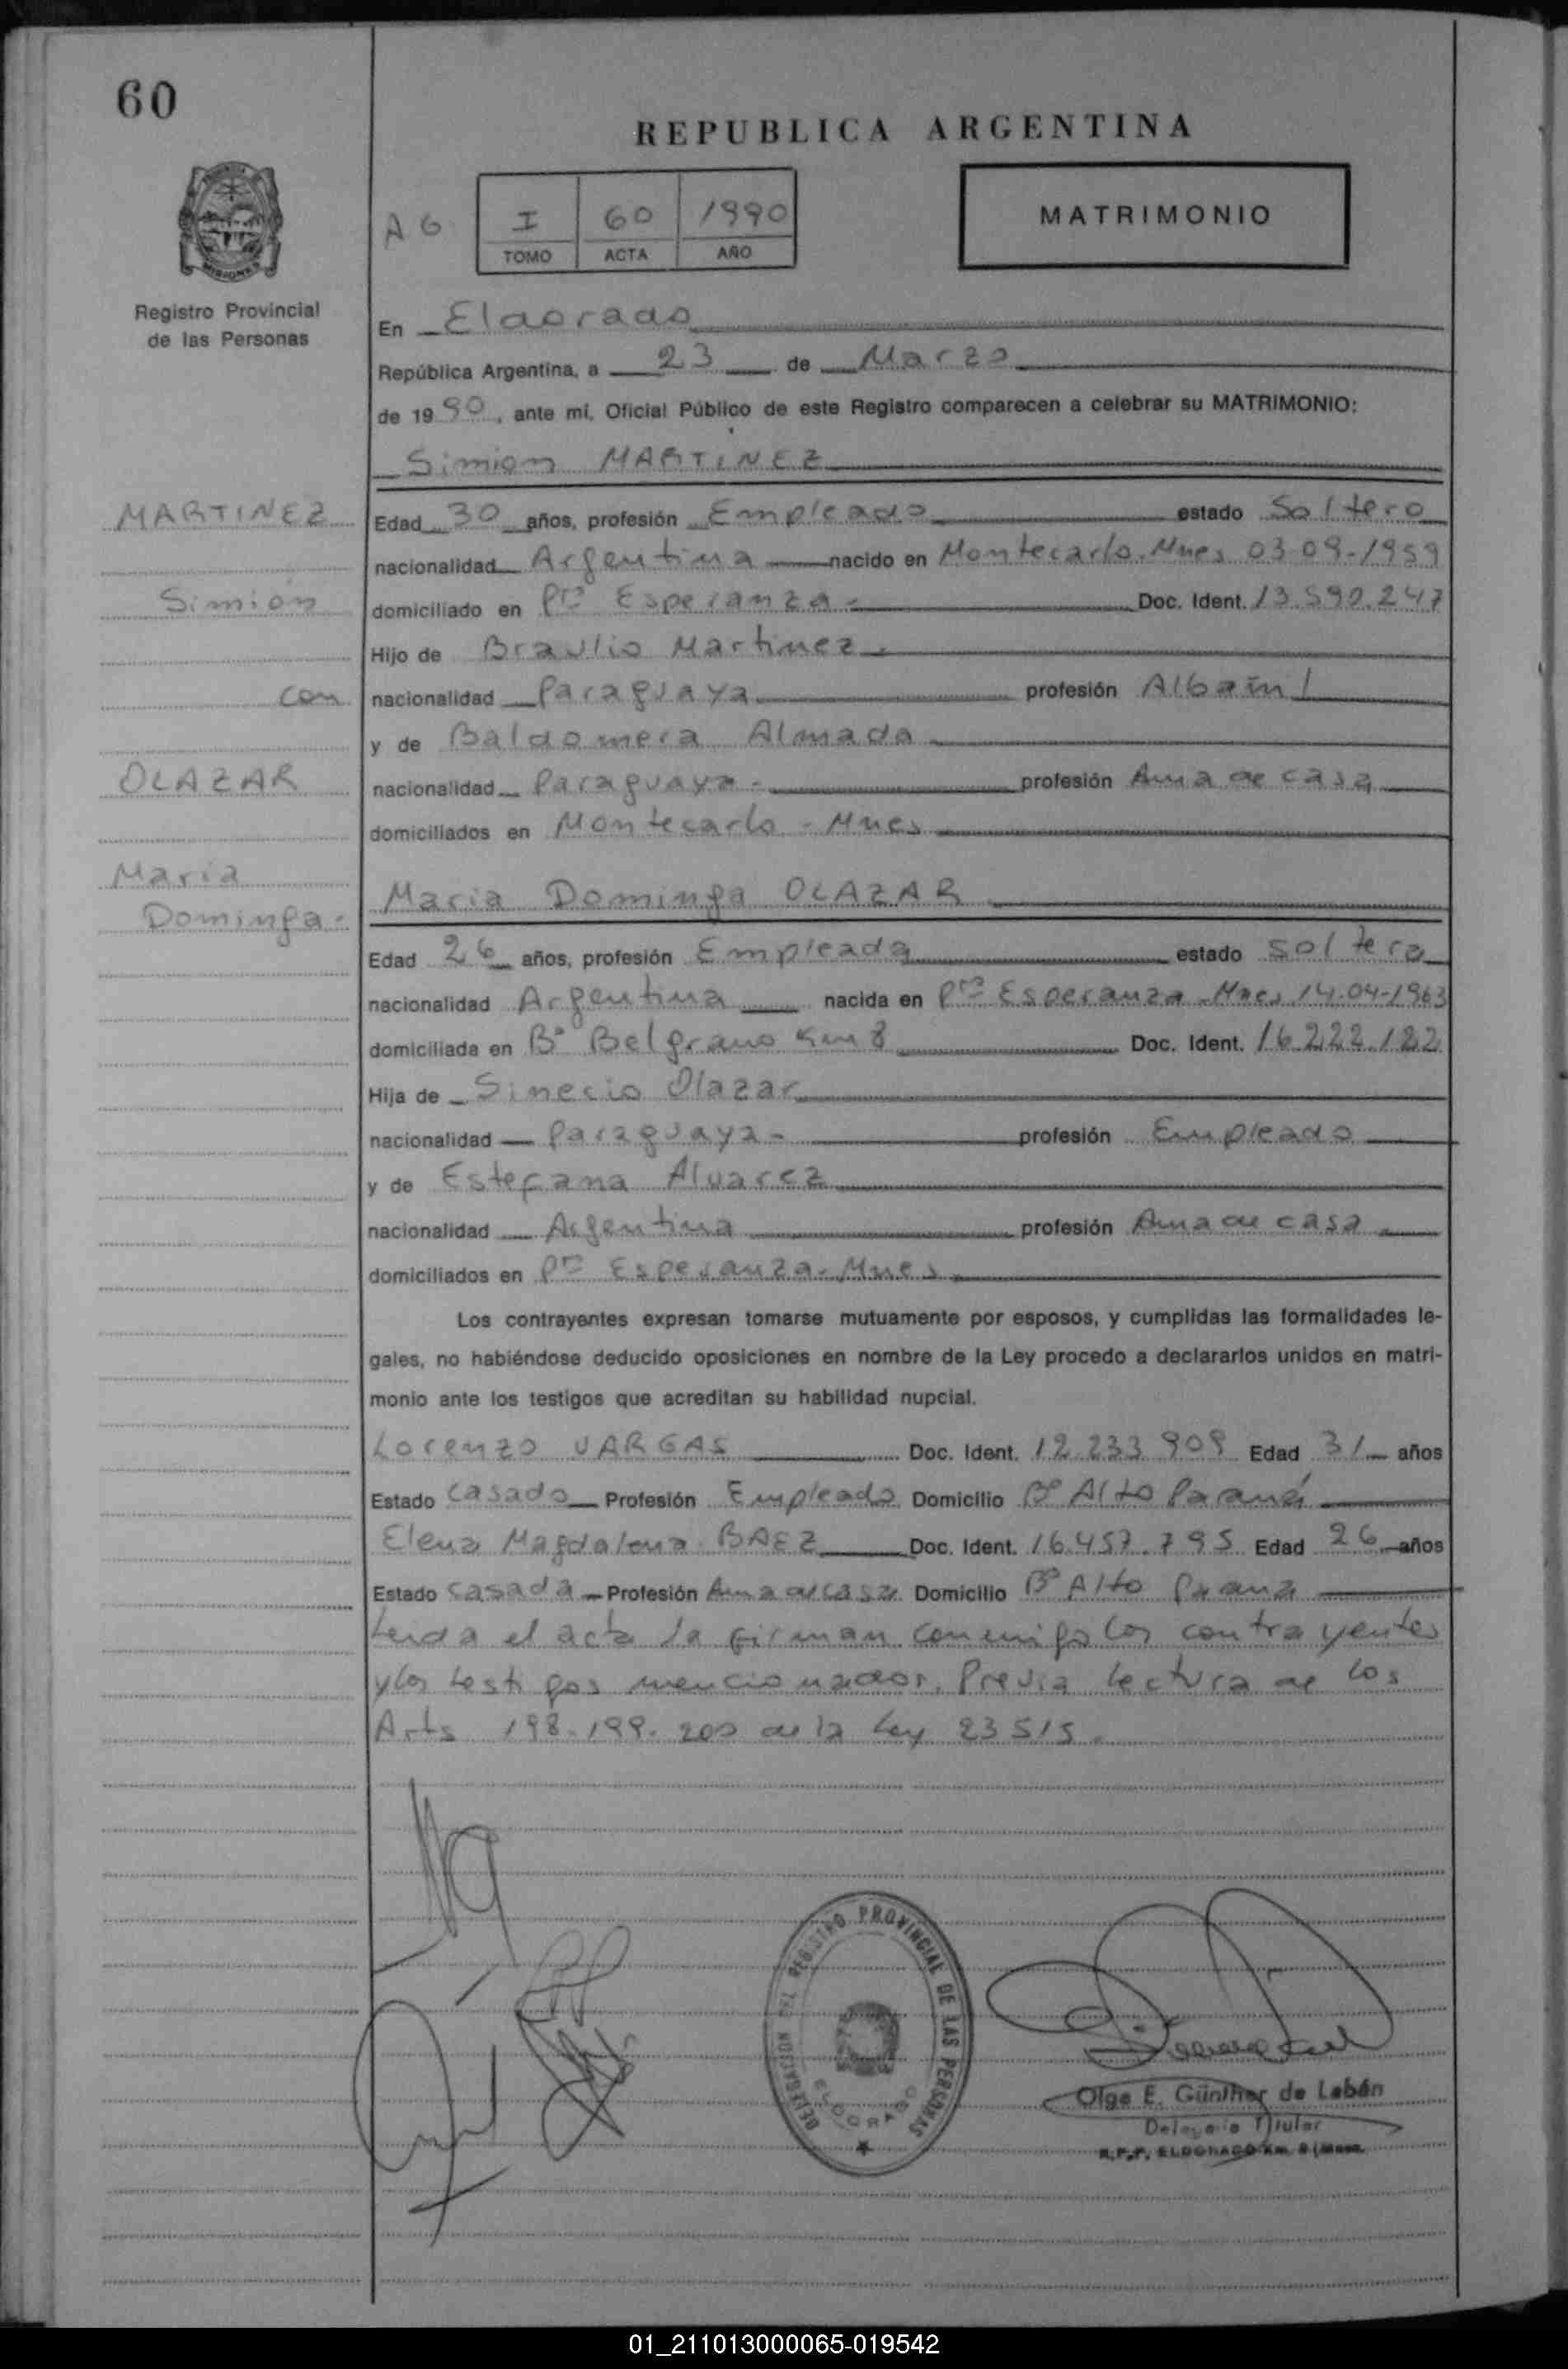 60
REPUBLICA ARGENTINA
MATRIMONIO
A G
I 60 1990
TOMO ACTA AÑO
MISIONES
Registro Provincial
de las Personas
En Eldorado
República Argentina, a 23 de Marzo
de 1990, ante mí, Oficial Público de este Registro comparecen a celebrar su MATRIMONIO:
Simion MARTINEZ
MARTINEZ
Simión
con
OLAZAR
Maria
Dominga.
Edad 30 años, profesión Empleado estado Soltero
nacionalidad Argentina nacido en Montecarlo. Mnes 03-09-1959
domiciliado en Pto Esperanza - Doc. Ident. 13.590.247
Hijo de Braulio Martinez
nacionalidad Paraguaya profesión Albañil
y de Baldomera Almada
nacionalidad Paraguaya - profesión Ama de casa
domiciliados en Montecarlo - Mnes
Maria Dominga OLAZAR
Edad 26 años, profesión Empleada estado soltera
nacionalidad Argentina nacida en Pto Esperanza - Mnes 14-04-1963
domiciliada en Bº Belgrano Km 8 Doc. Ident. 16.222.122
Hija de Sinecio Olazar
nacionalidad Paraguaya - profesión Empleado
y de Estefana Alvarez
nacionalidad Argentina profesión Ama de casa
domiciliados en Pto Esperanza - Mnes
Los contrayentes expresan tomarse mutuamente por esposos, y cumplidas las formalidades le-
gales, no habiéndose deducido oposiciones en nombre de la Ley procedo a declararlos unidos en matri-
monio ante los testigos que acreditan su habilidad nupcial.
Lorenzo VARGAS Doc. Ident. 12.233.909 Edad 31 años
Estado Casado Profesión Empleado Domicilio Bº Alto Paraná
Elena Magdalena BAEZ Doc. Ident. 16.457.795 Edad 26 años
Estado casada Profesión Ama de casa Domicilio Bº Alto Parana
Leida el acta la firman conmigo los contrayentes
y los testigos mencionados. Previa lectura de los
Arts 198-199-200 de la Ley 23515.
DELEGACION DEL REGISTRO PROVINCIAL DE LAS PERSONAS
ELDORADO
Olga E. Günther de Labán
Delegada Titular
R.P.P. ELDORADO Km. 9 (Mnes.
01_211013000065-019542